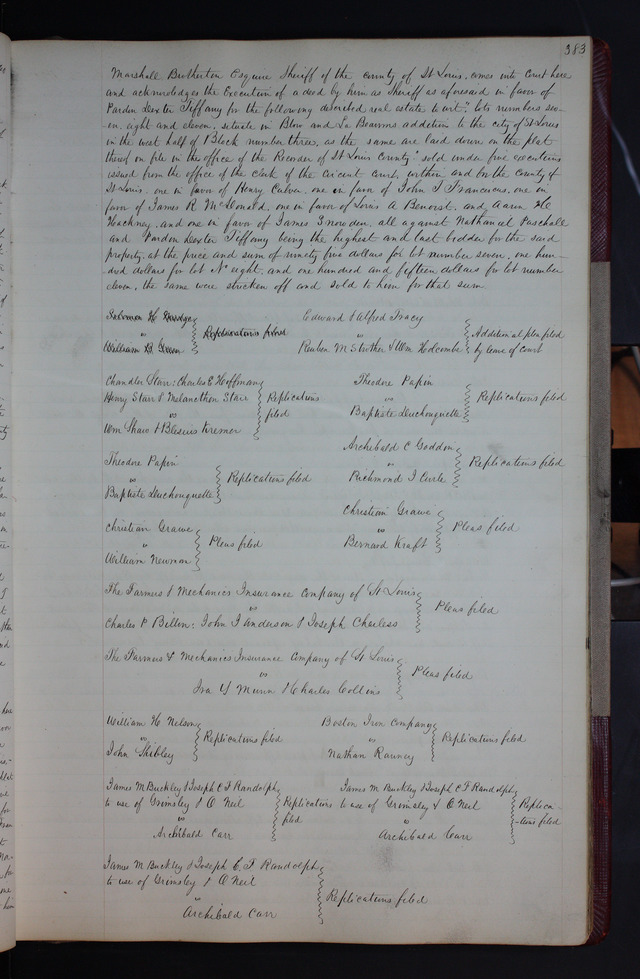 383
Marshall Brotherton Esquire Sheriff of the County of St Louis, comes into Court here
and acknowledges the Execution of a deed by him as Sheriff as aforesaid in favor of
Pardon Dexter Tiffany for the following described real estate to wit, "lots numbers sev-
en, eight and eleven, situate in Blow and La Beaumes addition to the city of St Louis
in the west half of Block number three, as the same are laid down on the plat
thereof on file in the office of the Recorder of St Louis County" sold under five executions
issued from the office of the Clerk of the Circuit Court, within and for the County of
St Louis, one in favor of Henry Culver, one in favor of John T Franciscus, one in
favor of James R McDonald, one in favor of Louis A Benoist, and Aaron
Hackney, and one in favor of James Snowden, all against Nathaniel Paschall
and Pardon Dexter Tiffany being the highest and last bidder for the said
property, at the price and sum of ninety five dollars for lot number seven, one hun-
dred dollars for lot No eight, and one hundred and fifteen dollars for lot number
eleven, the same were stricken off and sold to him for that sum
Solomon H
vs
William B
Replications filed
Edward & Alfred Tracy
vs
Reuben M Strother & Wm Holcombe
Additional plea filed
by leave of court
Chandler Starr, Charles E Hoffman
Henry Starr & Melancthon Starr
vs
Wm Shaw & Blesius Kremer
Replications
filed
Theodore Papin
vs
Baptiste Duchouquette
Replications filed
Theodore Papin
vs
Baptiste Duchouquette
Replications filed
Archibald C Goddin
vs
Richmond J Curle
Replications filed
Christian Grawe
vs
William Newman
Pleas filed
Christian Grawe
vs
Bernard Kraft
Pleas filed
The Farmers & Mechanics Insurance Company of St Louis
vs
Charles P Billon, John J Anderson & Joseph Charless
Pleas filed
The Farmers & Mechanics Insurance Company of St Louis
vs
Ira Y Munn & Charles Collins
Pleas filed
William H Nelson
vs
John Shibley
Replications filed
Boston Iron Company
vs
Nathan Ranney
Replications filed
James M Buckley & Joseph C F Randolph
to use of Grimsley & O Neil
vs
Archibald Carr
Replications
filed
James M Buckley & Joseph C F Randolph
to use of Grimsley & O Neil
vs
Archibald Carr
Replica-
-tions filed
James M Buckley & Joseph C. F Randolph
to use of Grimsley & O Neil
vs
Archibald Carr
Replications filed